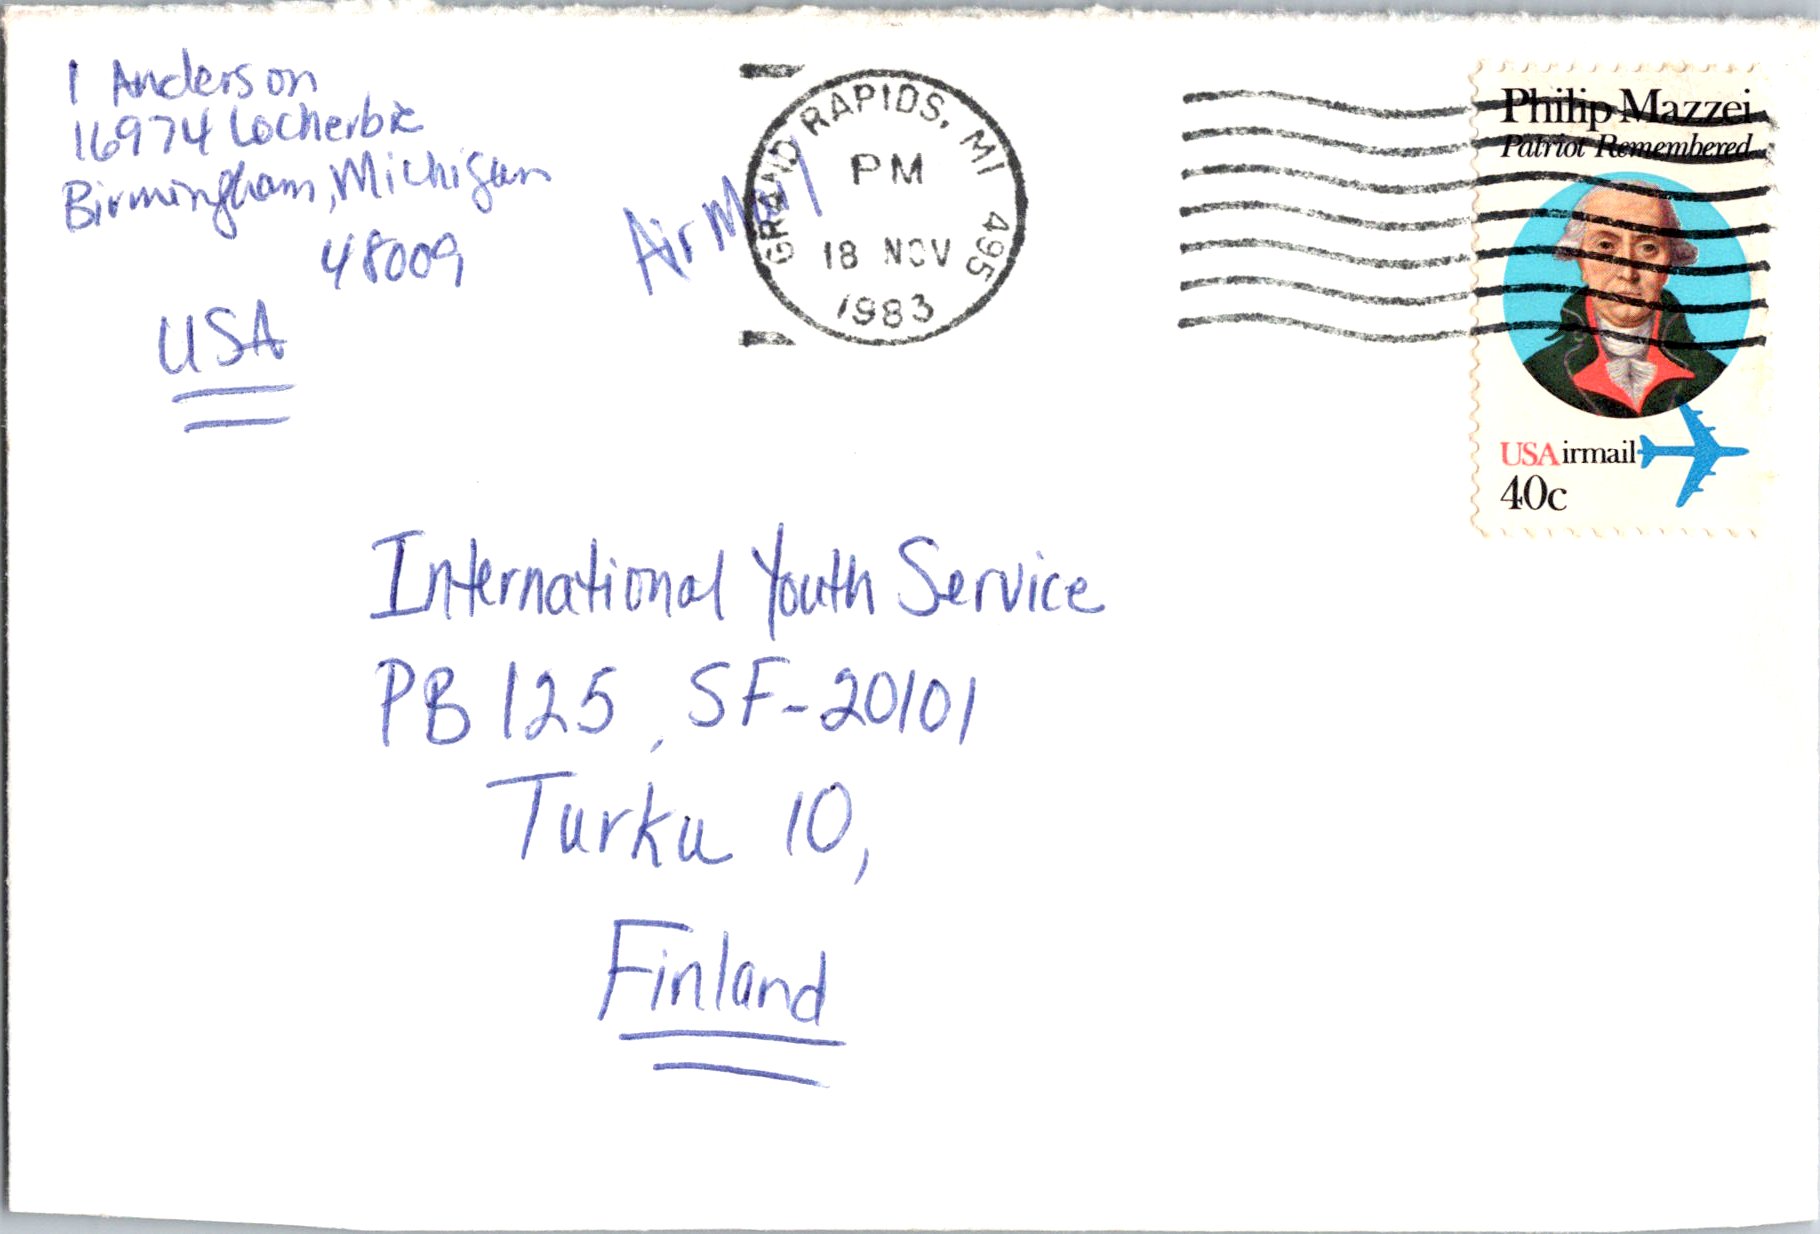 1 Anderson
16974 Locherbie
Birmingham, Michigan
48009
USA
Air Mail
GRAND RAPIDS, MI 495
PM
18 NOV
1983
Philip Mazzei
Patriot Remembered
USAirmail
40c
International Youth Service
PB 125, SF-20101
Turku 10,
Finland